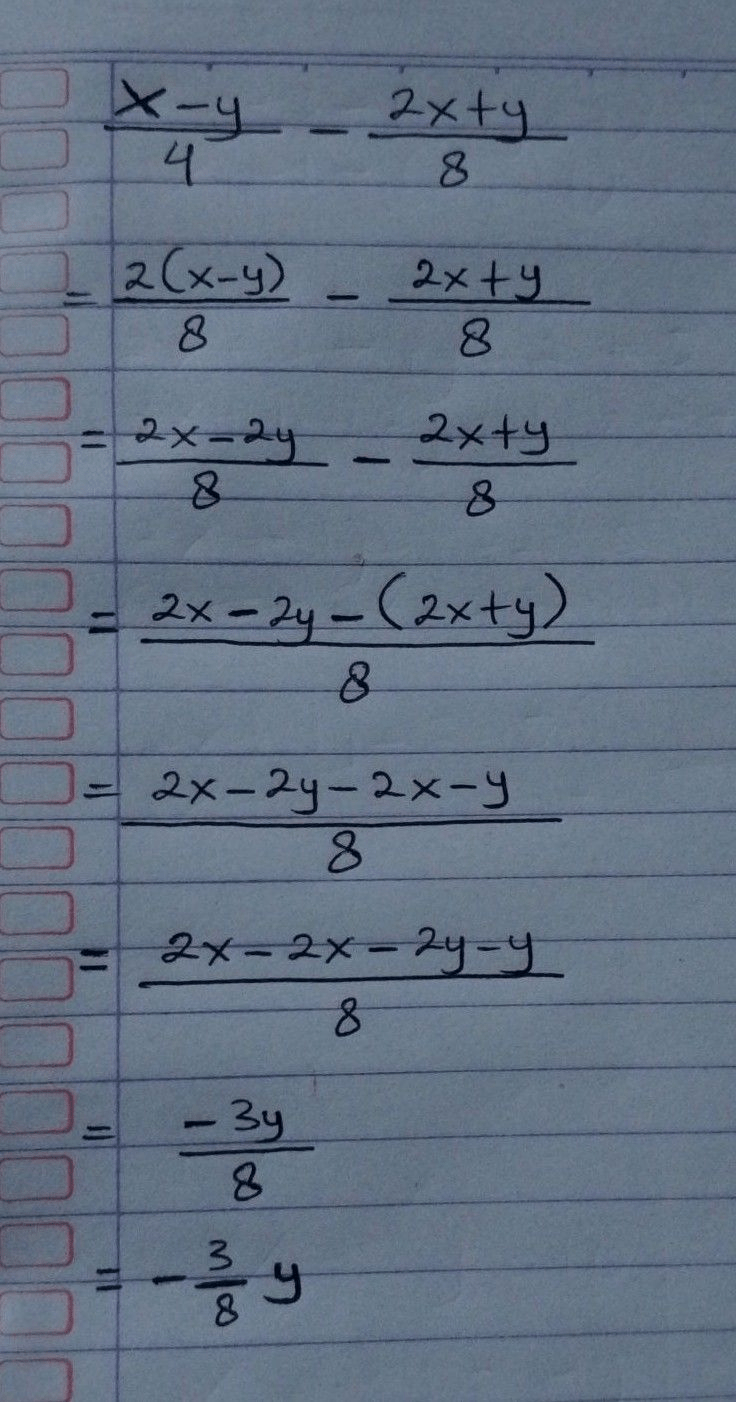 x-y/4 - 2x+y/8
= 2(x-y)/8 - 2x+y/8
= 2x-2y/8 - 2x+y/8
= 2x-2y-(2x+y)/8
= 2x-2y-2x-y/8
= 2x-2x-2y-y/8
= -3y/8
= -3/8 y